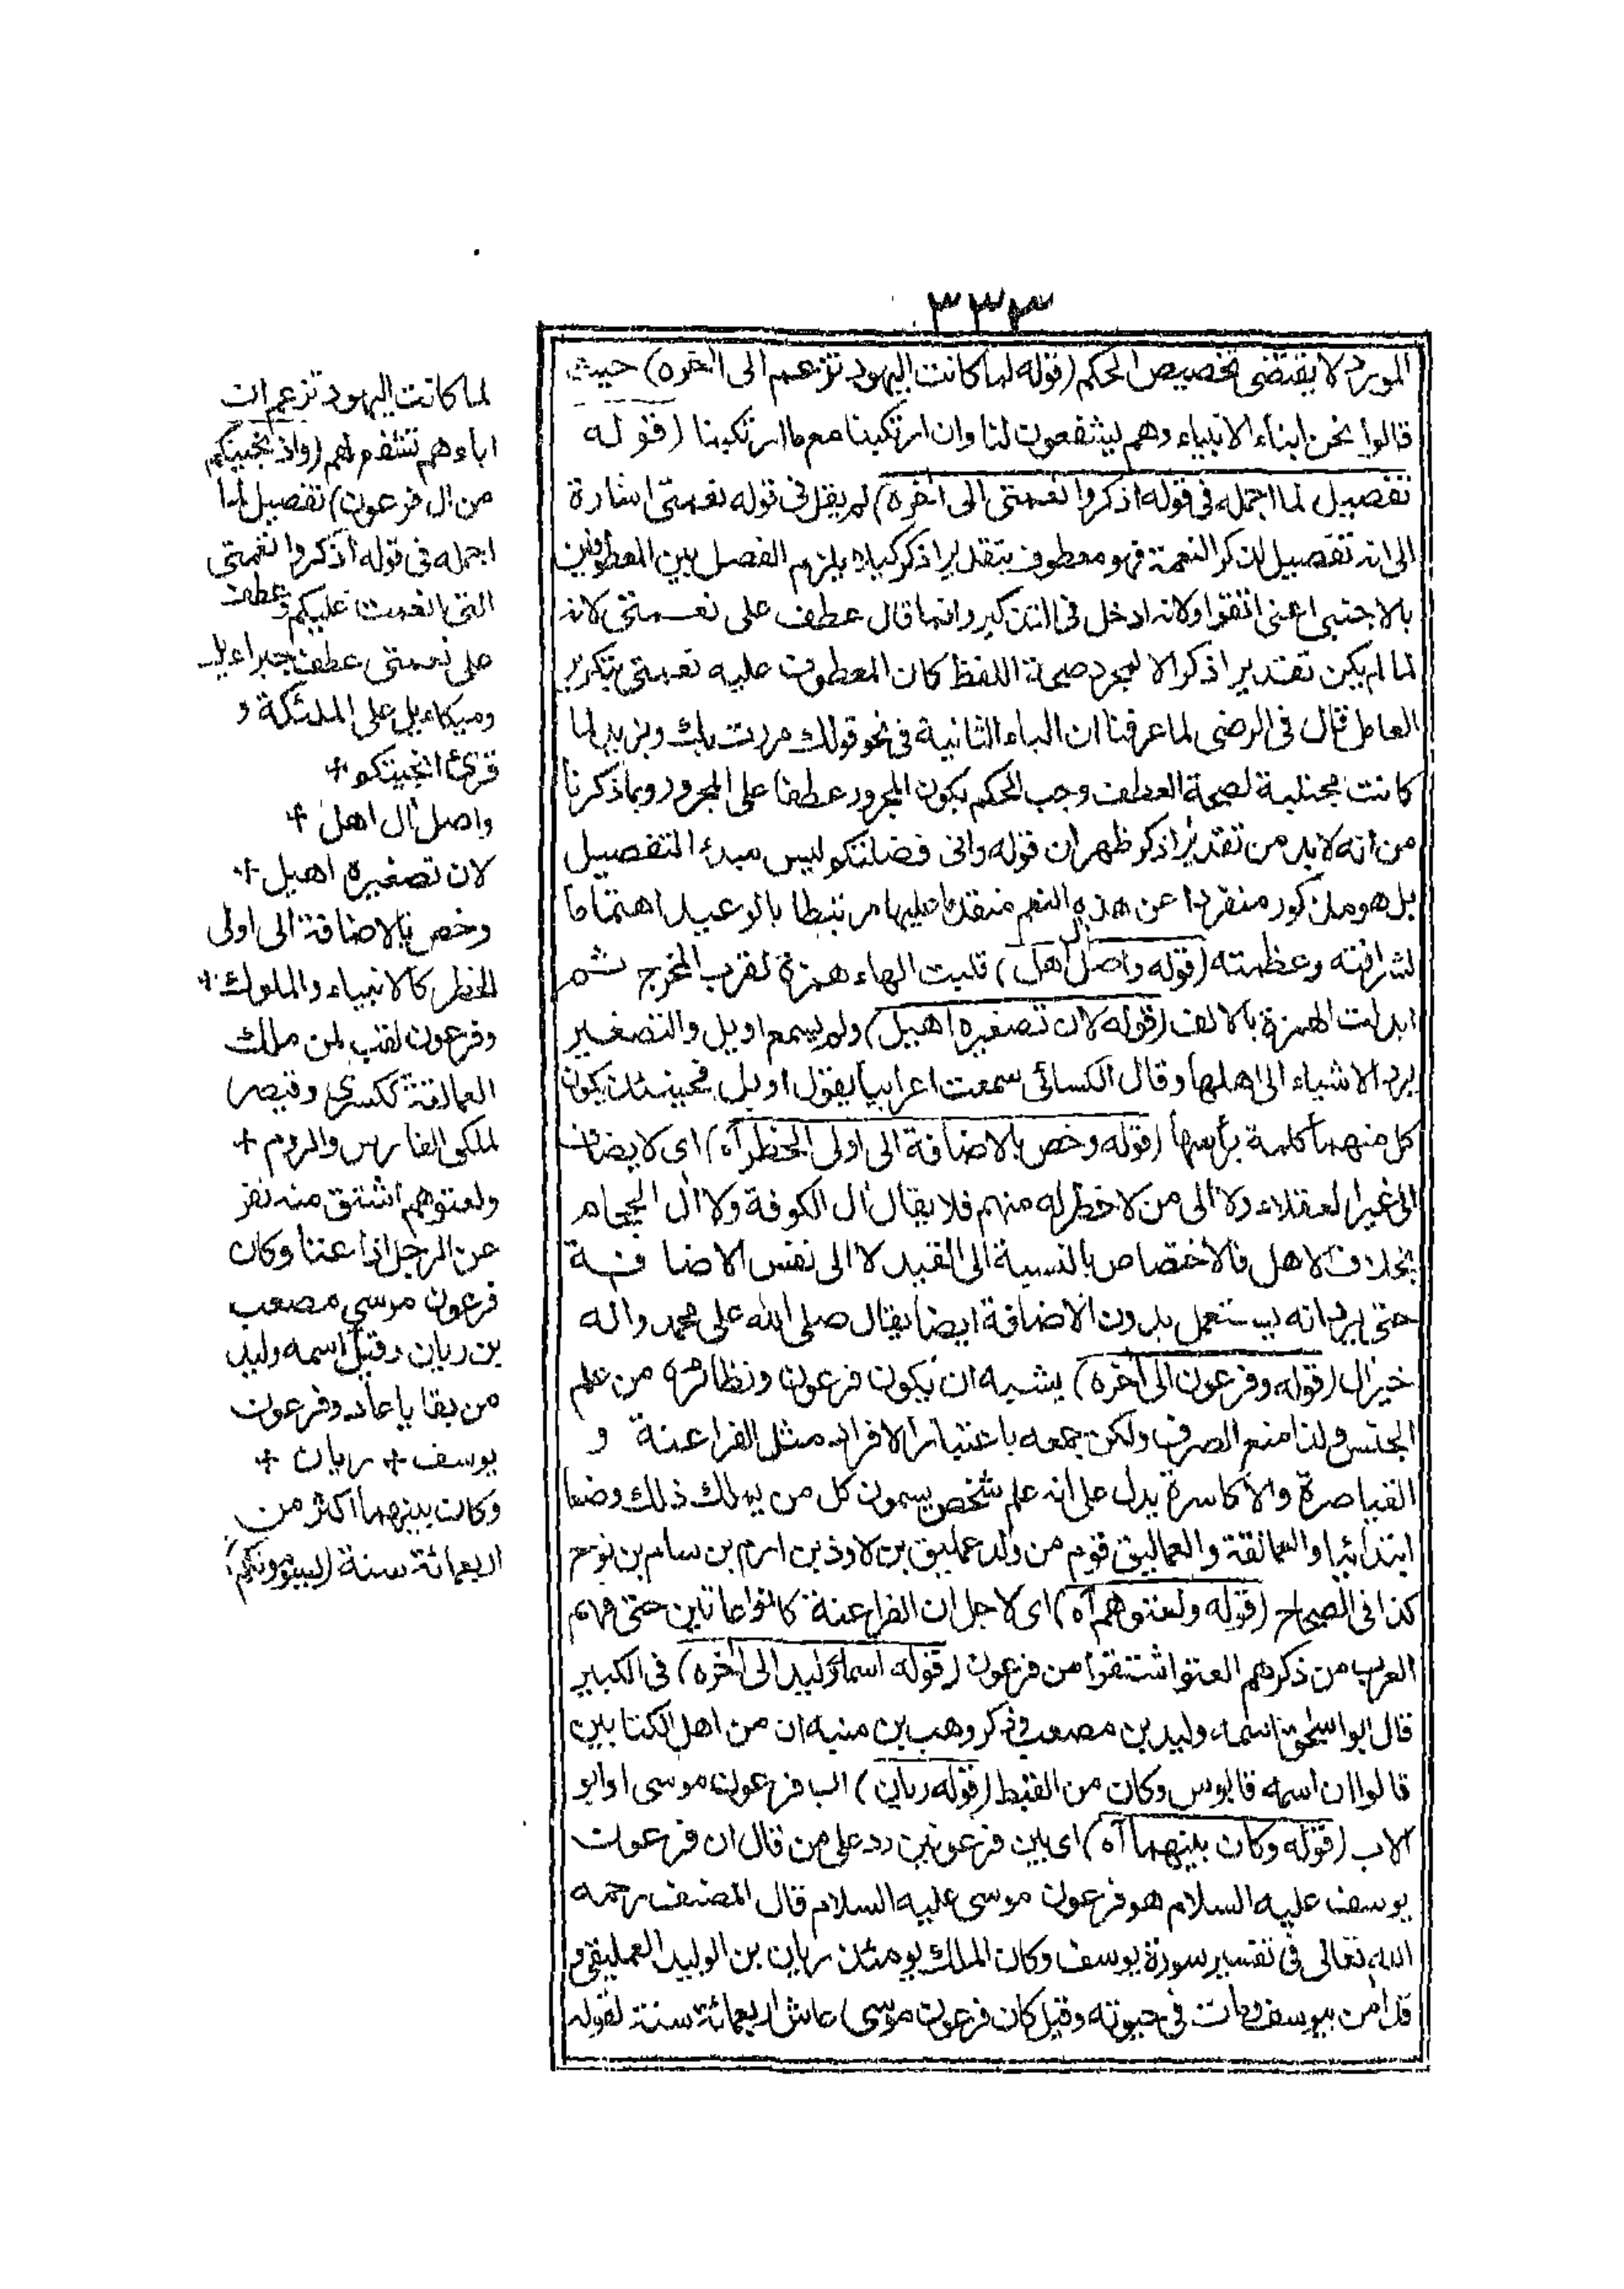 ٣٣٣
المورد لا يقتضى تخصيص الحكم (قوله لما كانت اليهود تزعم الى اٰخره) حيث
قالوا نحن ابناء الانبياء وهم ليشفعون لنا وان ارتكبنا مع ما ارتكبنا (قوله
تفصيل لما اجمله فى قوله اذكروا نعمتى الى اٰخره) لم يقل فى قوله نعمتى اشارة
الى انه تفصيل لذكر النعمة فهو معطوف بتقدير اذكر كيلا يلزم الفصل بين المعطوفين
بالاجنبى اعنى اتقوا ولانه ادخل فى التذكير وانما قال عطف على نعمتى لانه
لما لم يكن تقدير اذكر الا لمجرد صحة اللفظ كان المعطوف عليه نعمتى بتكرير
العامل قال فى الرضى لما عرفنا ان الباء الثانية فى نحو قولك مررت بك وبزيد لما
كانت مجتلبة لصحة العطف وجب الحكم بكون المجرور عطفا على المجرور وبما ذكرنا
من انه لا بد من تقدير اذكر ظهر ان قوله وانى فضلتكم ليس مبدء التفصيل
بل هو مذكور منفردا عن هذه النعم متقدما عليها مرتبطا بالوعيد اهتماما
لشرافته وعظمته (قوله واصل اٰل اهل) قلبت الهاء همزة لقرب المخرج ثم
ابدلت الهمزة بالالف (قوله لان تصغيره اهيل) ولم يسمع اويل والتصغير
يرد الاشياء الى اهلها وقال الكسائى سمعت اعرابيا يقول اويل فحينئذ يكون
كل منهما كلمة برأسها (قوله وخص بالاضافة الى اولى الخطر اٰه) اى لا يضاف
الى غير العقلاء ولا الى من لا خطر له منهم فلا يقال اٰل الكوفة ولا اٰل الحجام
بخلاف الاهل فالاختصاص بالنسبة الى القيد لا الى نفس الاضافة
حتى يرد انه يستعمل بدون الاضافة ايضا يقال صلى الله على محمد واٰله
خير اٰل (قوله وفرعون الى اٰخره) يشبه ان يكون فرعون ونظائره من علم
الجنس ولذا منع الصرف ولكن جمعه باعتبار الافراد مثل الفراعنة و
القياصرة والاكاسرة يدل على انه علم شخص يسمون كل من يملك ذلك وضعا
ابتدائيا والعمالقة والعماليق قوم من ولد عمليق بن لاوذ بن ارم بن سام بن نوح
كذا فى الصحاح (قوله ولعتوهم اٰه) اى لاجل ان الفراعنة كانوا عاتين حتى فهم
العرب من ذكرهم العتو اشتقوا من فرعون (قوله اسمه وليد الى اٰخره) فى الكبير
قال ابو اسحق اسمه وليد بن مصعب وذكر وهب بن منبه ان من اهل الكتابين
قالوا ان اسمه قابوس وكان من القبط (قوله ريان) اب فرعون موسى او ابو
الاب (قوله وكان بينهما اٰه) اى بين فرعونين رد على من قال ان فرعون
يوسف عليه السلام هو فرعون موسى عليه السلام قال المصنف رحمه
الله تعالى فى تفسير سورة يوسف وكان الملك يومئذ ريان بن الوليد العمليقى و
قد اٰمن بيوسف ومات فى حيوته وقيل كان فرعون موسى عاش اربعمائة سنة لقوله
لما كانت اليهود تزعم ان
اباءهم تشفع لهم (واذ نجينكم
من اٰل فرعون) تفصيل لما
اجمله فى قوله اذكروا نعمتى
التى انعمت عليكم وعطف
على نعمتى عطف جبراءيل
وميكاءيل على الملئكة و
قرئ انجيتكم +
واصل اٰل اهل +
لان تصغيره اهيل +
وخص بالاضافة الى اولى
الخطر كالانبياء والملوك +
وفرعون لقب لمن ملك
العمالقة ككسرى وقيصر
لملكى الفارس والروم +
ولعتوهم اشتق منه تفر
عن الرجل اذا عتا وكان
فرعون موسى مصعب
بن ريان وقيل اسمه وليد
من بقايا عاد وفرعون
يوسف + ريان +
وكان بينهما اكثر من
اربعمائة سنة (يسومونكم)